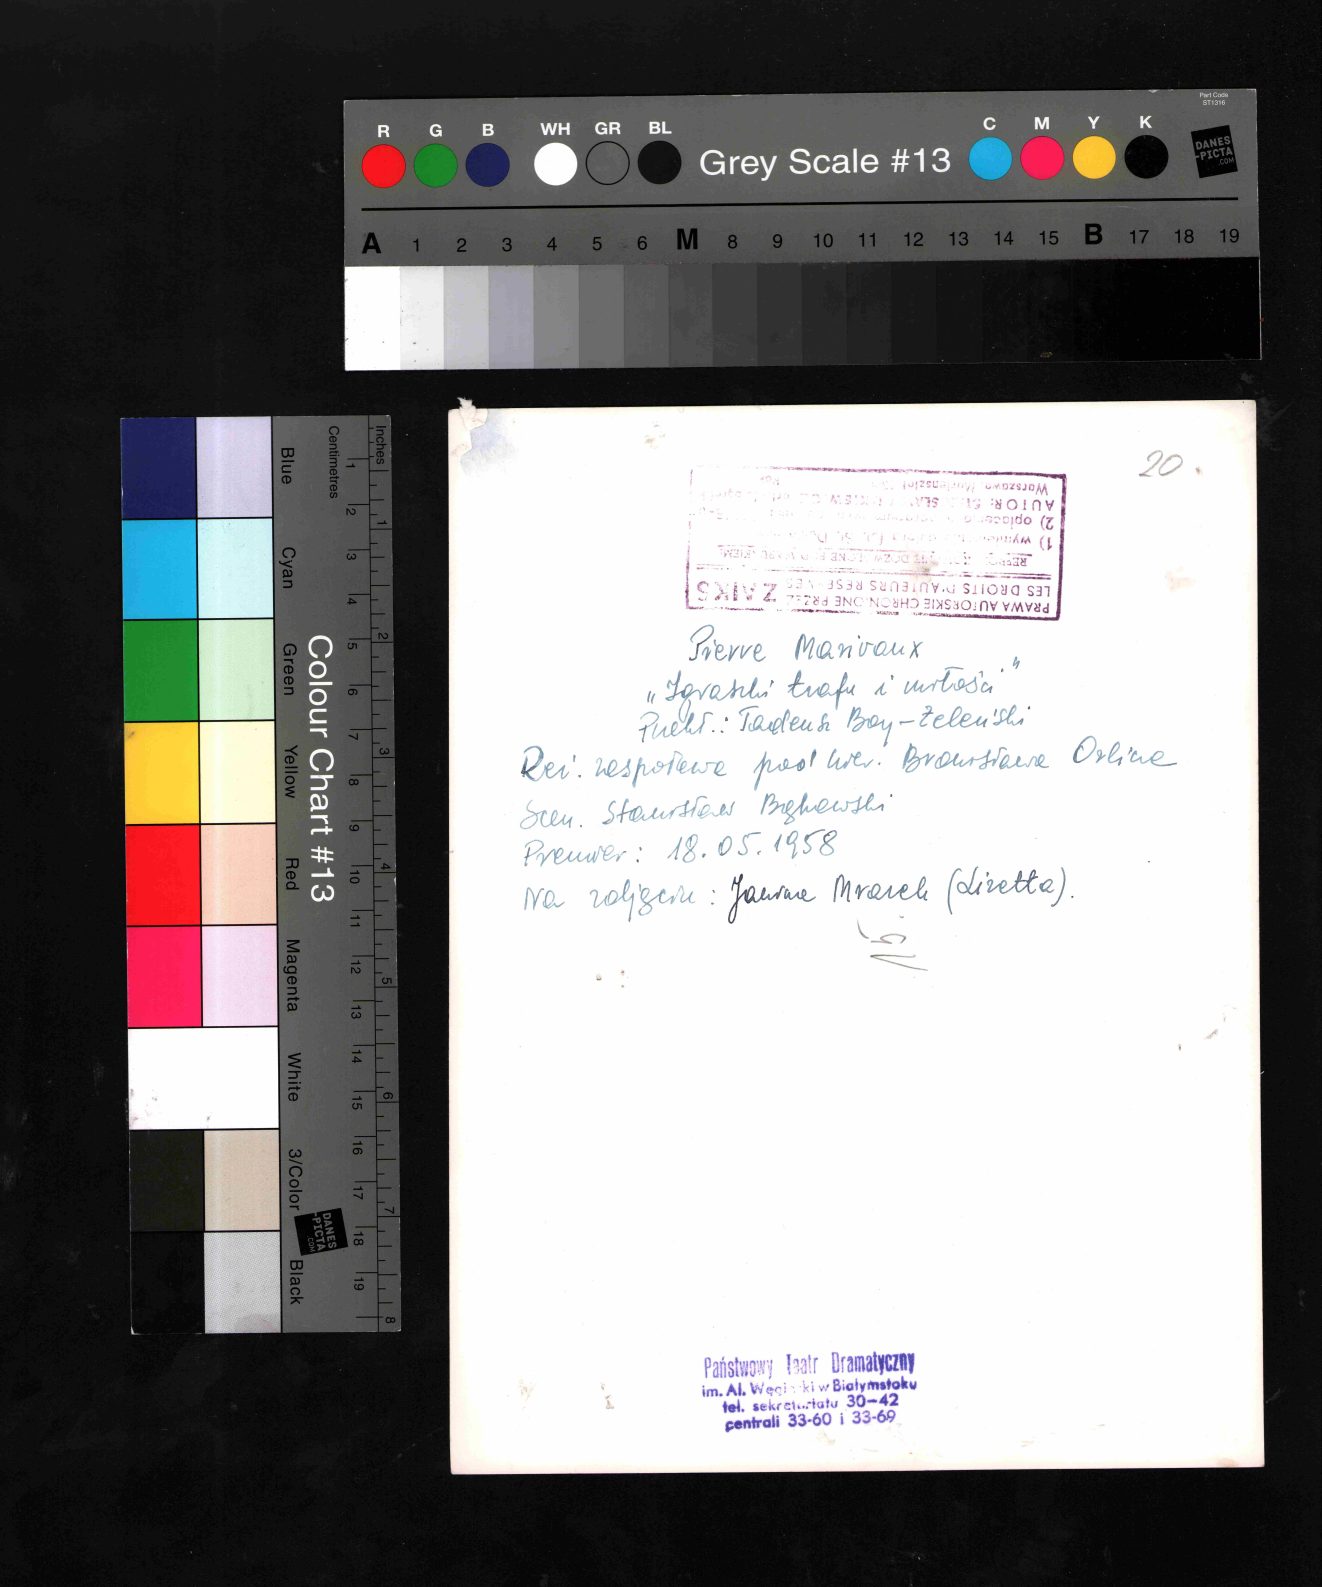 Part Code
ST1316
R G B WH GR BL
Grey Scale #13
C M Y K
DANES
-PICTA
.COM
A 1 2 3 4 5 6 M 8 9 10 11 12 13 14 15 B 17 18 19
Colour Chart #13
Blue
Cyan
Green
Yellow
Red
Magenta
White
3/Color
Black
Centimetres
1 2 3 4 5 6 7 8 9 10 11 12 13 14 15 16 17 18 19
Inches
1 2 3 4 5 6 7 8
DANES
-PICTA
.COM
20
PRAWA AUTORSKIE CHRONIONE PRZEZ
LES DROITS D'AUTEURS RESERVES
ZAIKS
1)
2)
AUTOR:
Warszawa
Pierre Marivaux
"Igraszki trafu i miłości"
Przekł.: Tadeusz Boy-Żeleński
Reż. zespołowa pod kier. Bronisława Orlicza
Scen. Stanisław Bąkowski
Premier: 18.05.1958
Na zdjęciu: Janina Mrazek (Lizetta).
Państwowy Teatr Dramatyczny
im. Al. Węgierki w Białymstoku
tel. sekretariatu 30-42
centrali 33-60 i 33-69